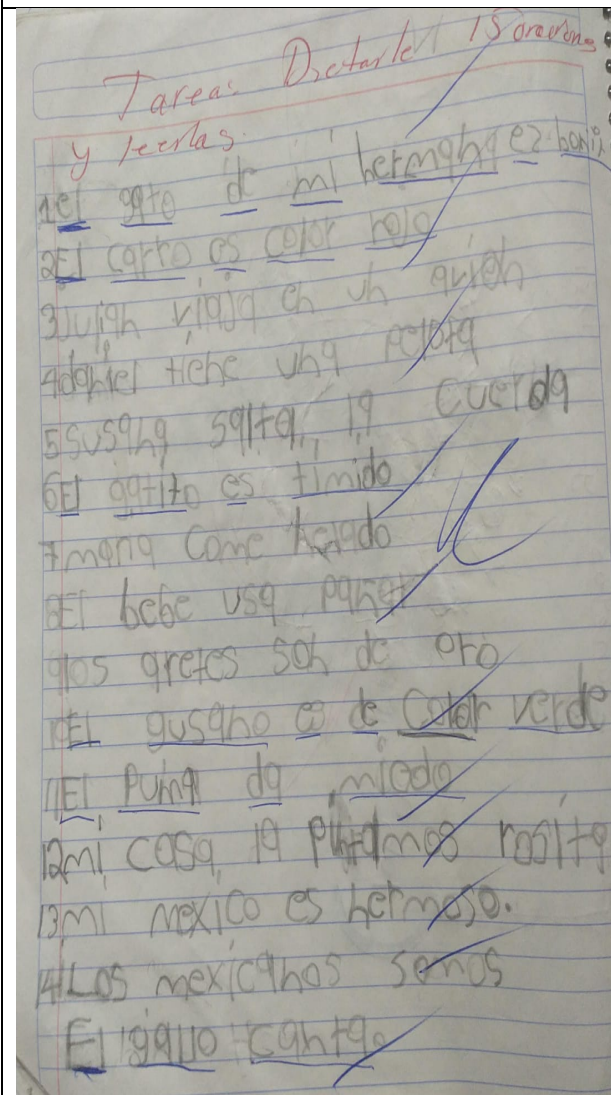 Tarea: Dictarle 15 oraciones
y leerlas.
1 el gato de mi hermana ez boni
2 El carro es color rojo
3 Julian viaja en un avión
4 daniel tiene una pelota
5 susana salta la cuerda
6 El gatito es timido
7 maria come helado
8 El bebe usa pañal
9 los aretes son de oro
10 El gusano es de color verde
11 El Puma da miedo
12 mi casa la Pintamos rosita
13 mi mexico es hermoso.
14 Los mexicanos somos
El gallo canta.